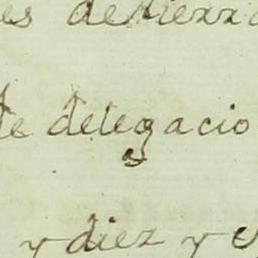 es de tierra
de delegacio
y diez y